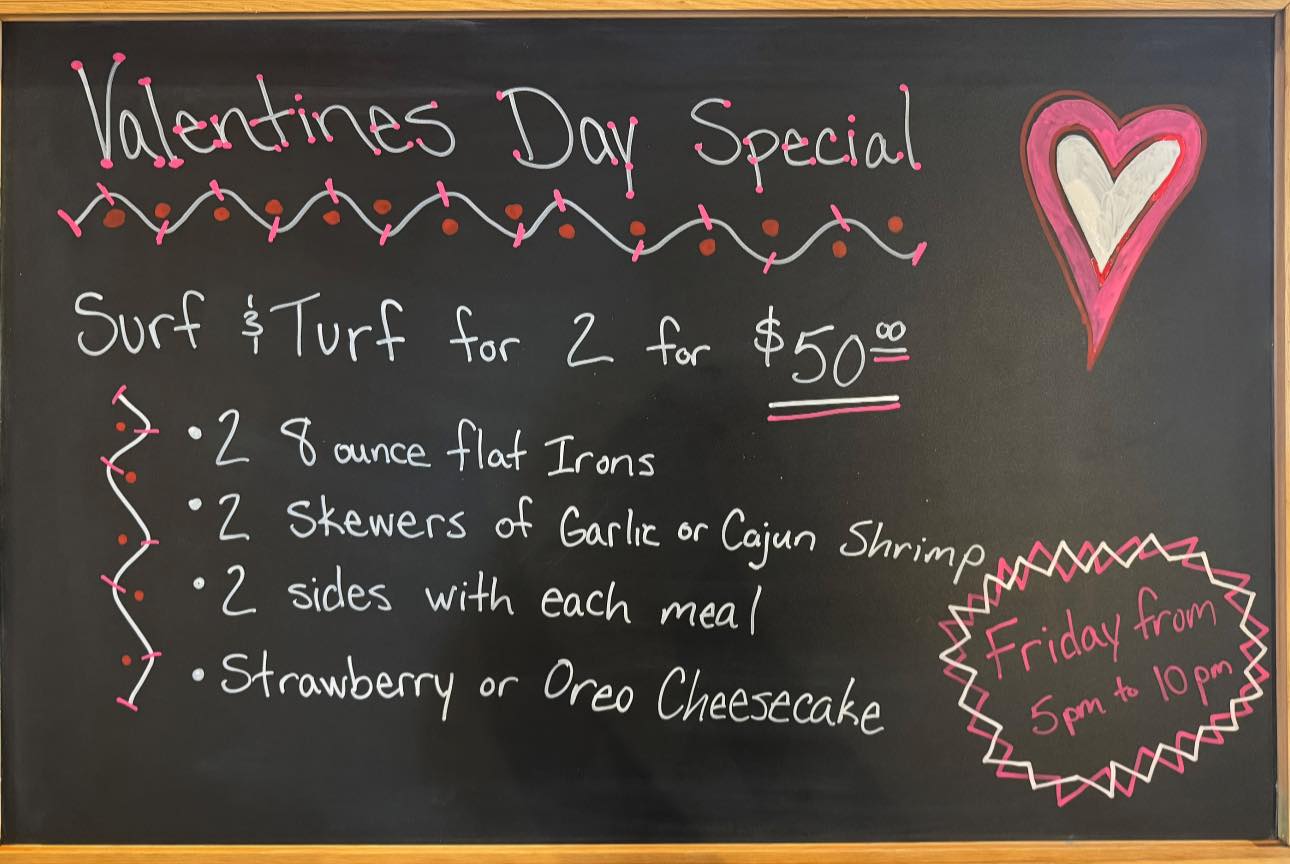 Valentines Day Special
Surf & Turf for 2 for $50.00
• 2 8 ounce flat Irons
• 2 Skewers of Garlic or Cajun Shrimp
• 2 sides with each meal
• Strawberry or Oreo Cheesecake
Friday from
5pm to 10pm